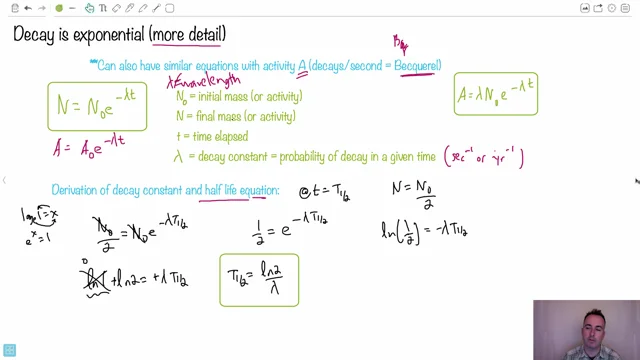 Decay is exponential (more detail)
Bq
**Can also have similar equations with activity A (decays/second = Becquerel)
λ ≠ wavelength
N = N₀e^-λt
N₀ = initial mass (or activity)
A = λN₀e^-λt
N = final mass (or activity)
A = A₀e^-λt
t = time elapsed
λ = decay constant = probability of decay in a given time (sec⁻¹ or yr⁻¹)
Derivation of decay constant and half life equation:
@ t = T₁/₂
N = N₀/2
ln 1 = x
e^x = 1
N₀/2 = N₀e^-λT₁/₂
1/2 = e^-λT₁/₂
ln(1/2) = -λT₁/₂
0
ln 1 + ln2 = +λT₁/₂
T₁/₂ = ln2/λ